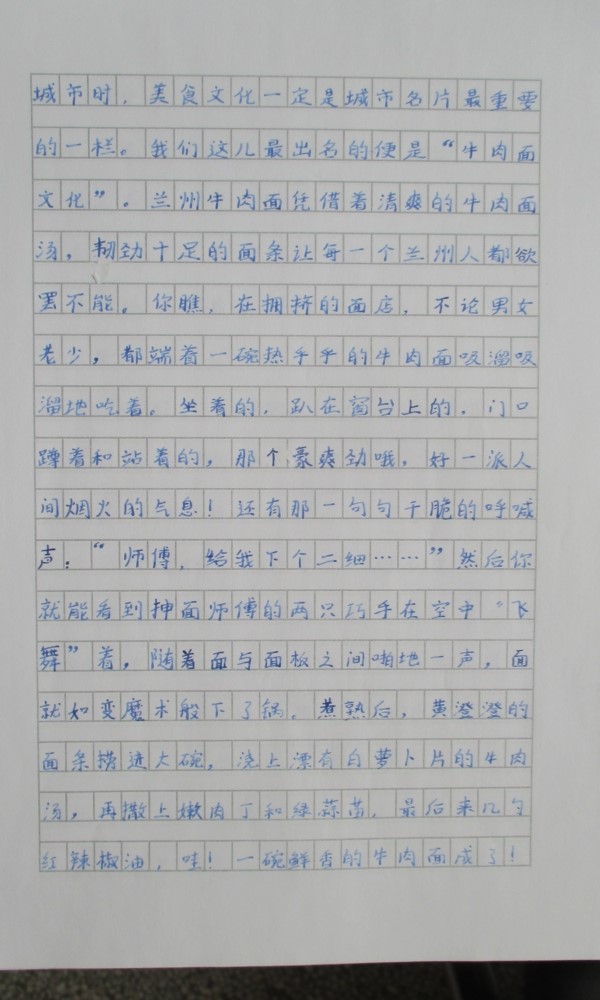 城市时，美食文化一定是城市名片最重要
的一栏。我们这儿最出名的便是“牛肉面
文化”。兰州牛肉面凭借着清爽的牛肉面
汤，韧劲十足的面条让每一个兰州人都欲
罢不能。你瞧，在拥挤的面店，不论男女
老少，都端着一碗热乎乎的牛肉面吸溜吸
溜地吃着。坐着的，趴在窗台上的，门口
蹲着和站着的，那个豪爽劲哦，好一派人
间烟火的气息！还有那一句句干脆的呼喊
声：“师傅，给我下个二细……”然后你
就能看到抻面师傅的两只巧手在空中“飞
舞”着，随着面与面板之间啪地一声，面
就如变魔术般下了锅。煮熟后，黄澄澄的
面条捞进大碗，浇上漂有白萝卜片的牛肉
汤，再撒上嫩肉丁和绿蒜苗，最后来几勺
红辣椒油，哇！一碗鲜香的牛肉面成了！